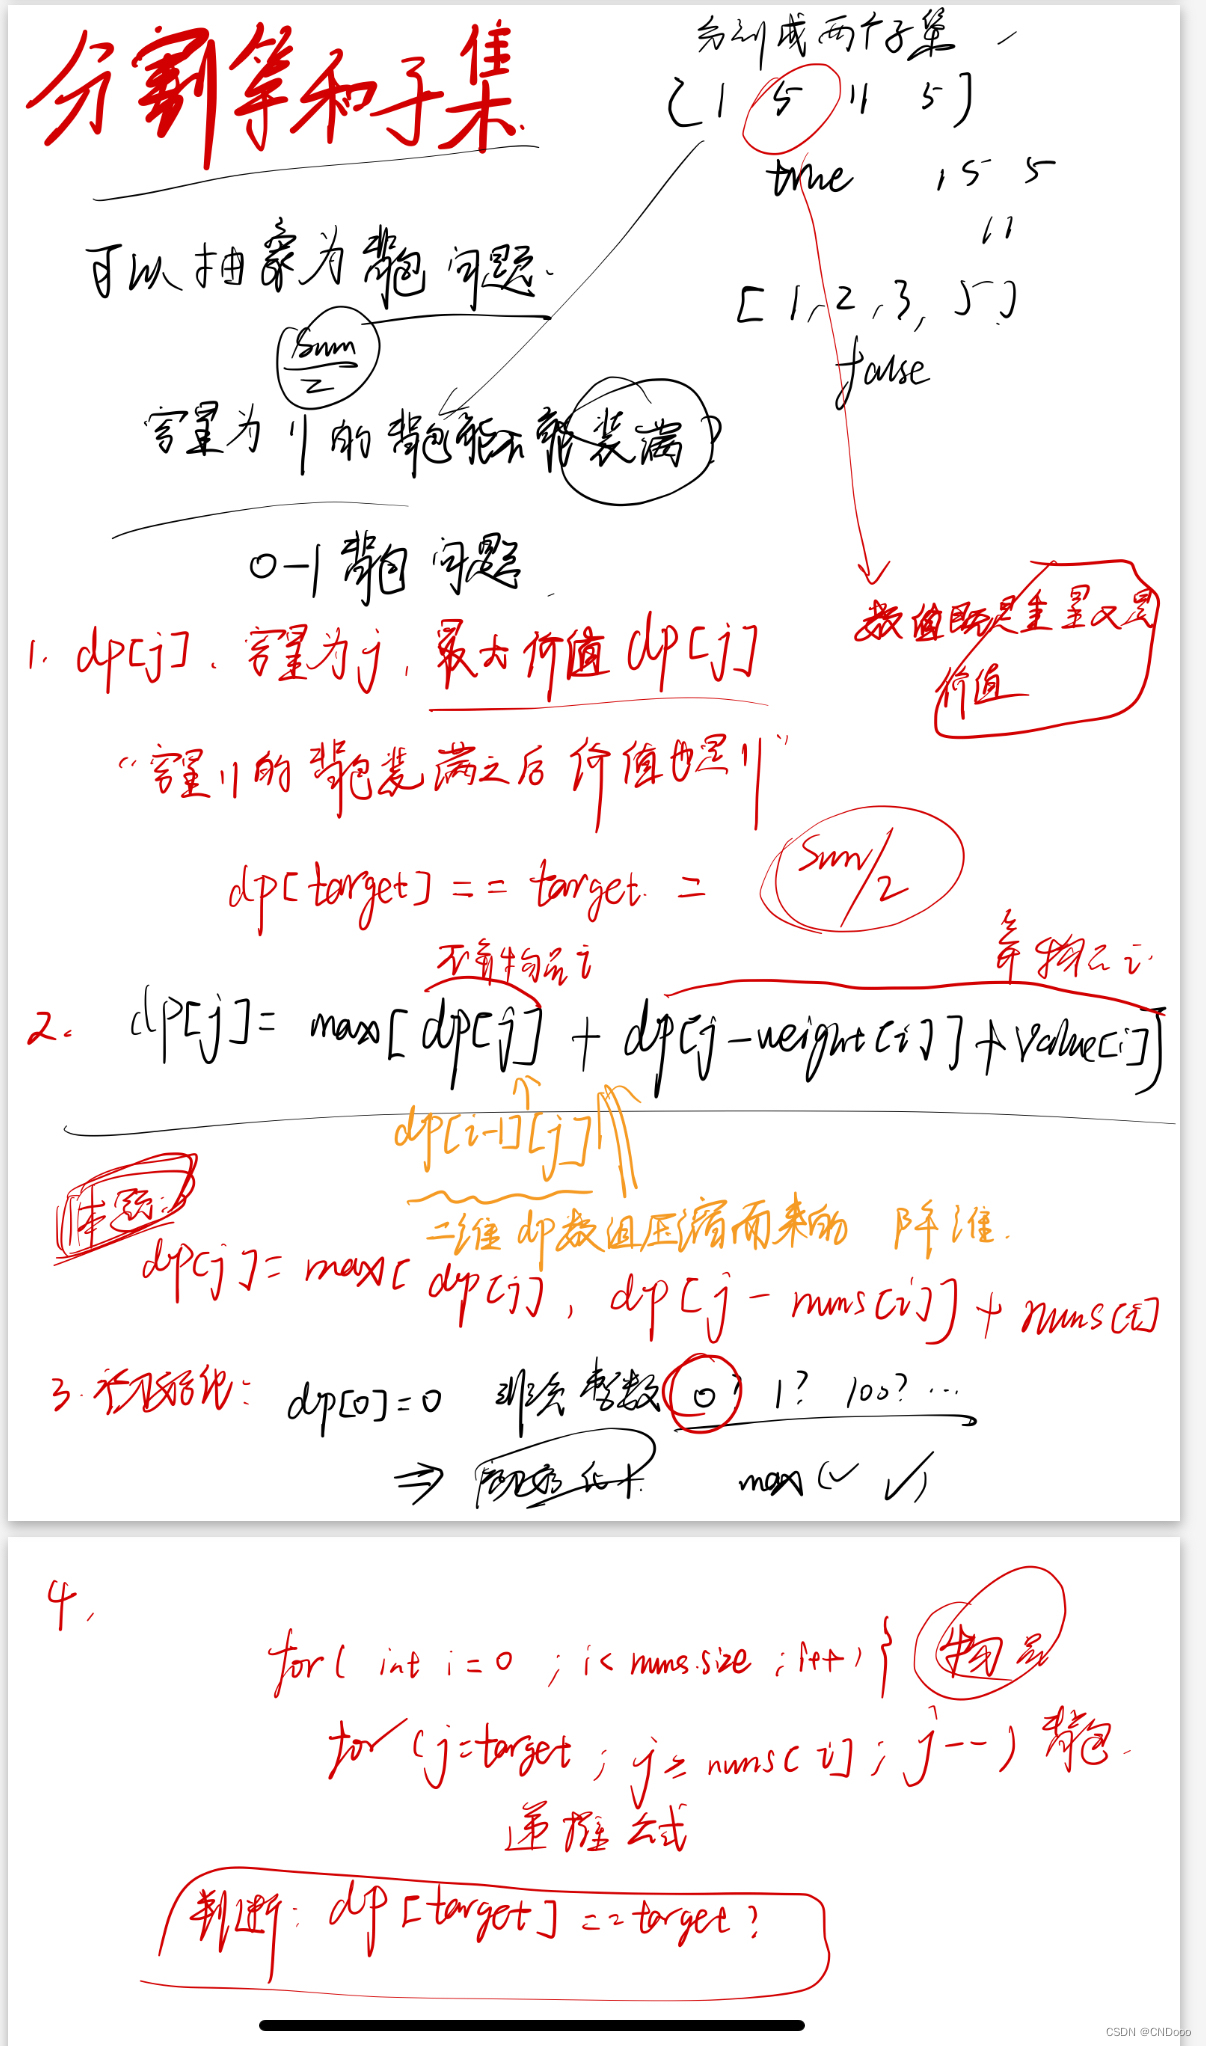 分割等和子集
分割成两个子集
[1 5 11 5]
true 1 5 5
11
可以抽象为背包问题.
[1,2,3,5]
false
sum/2
容量为11的背包能不能装满?
0-1背包问题
数值既是重量又是
价值
1. dp[j]、容量为j,最大价值dp[j]
“容量11的背包装满之后价值也是11”
dp[target] == target. = sum/2
不放物品i
放物品i
2. dp[j] = max[dp[j] + dp[j-weight[i]] + value[i]]
dp[i-1][j]
二维dp数组压缩而来的 降维.
本题:
dp[j] = max[dp[j], dp[j-nums[i]] + nums[i]
3.初始化: dp[0]=0 非负整数 0? 1? 100? ...
⇒ 初始化 max(✓ ✓)
4.
for( int i=0 ; i<nums.size ; i++){ 物品
for (j=target ; j≥nums[i] ; j--) 背包.
递推公式
判断: dp[target]==target?
CSDN @CNDooo